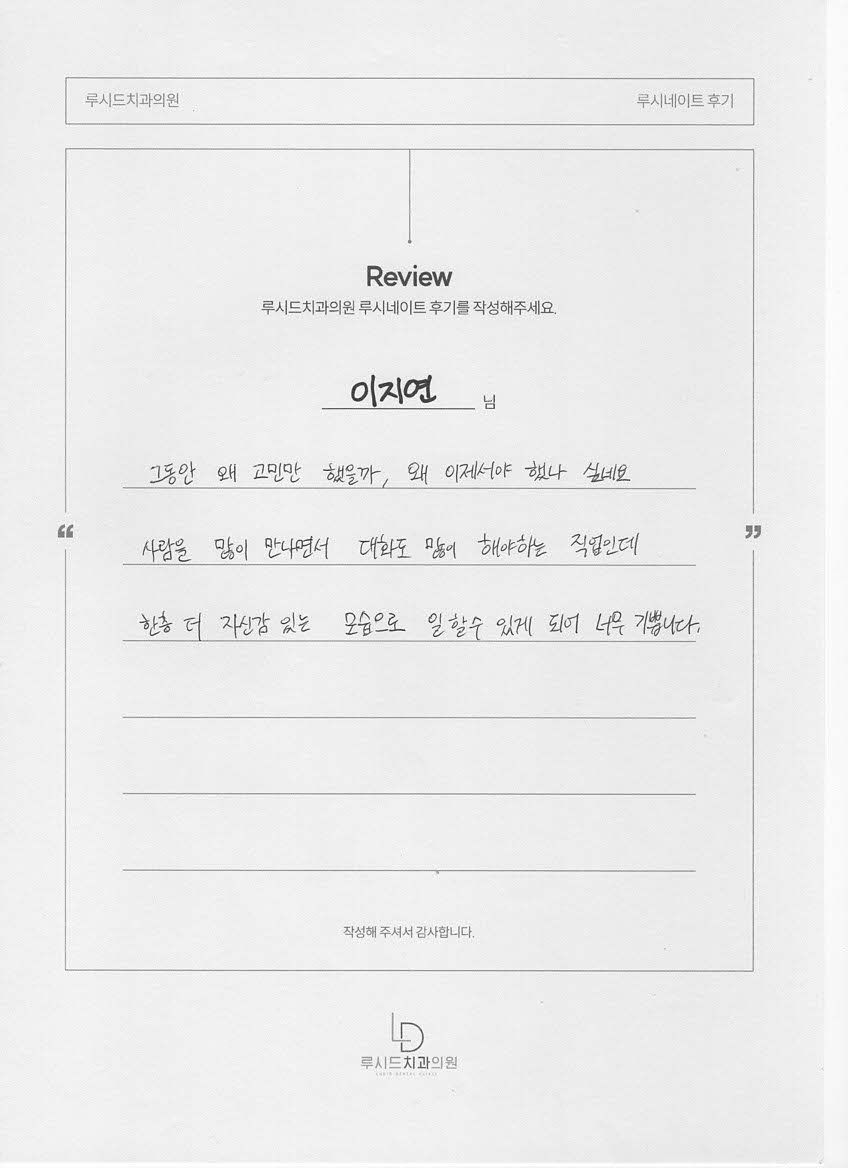 루시드치과의원
루시네이트 후기
Review
루시드치과의원 루시네이트 후기를 작성해주세요.
이지연 님
그동안 왜 고민만 했을까, 왜 이제서야 했나 싶네요
“ ”
사람을 많이 만나면서 대화도 많이 해야하는 직업인데
한층 더 자신감 있는 모습으로 일 할수 있게 되어 너무 기쁩니다.
작성해 주셔서 감사합니다.
LD
루시드치과의원